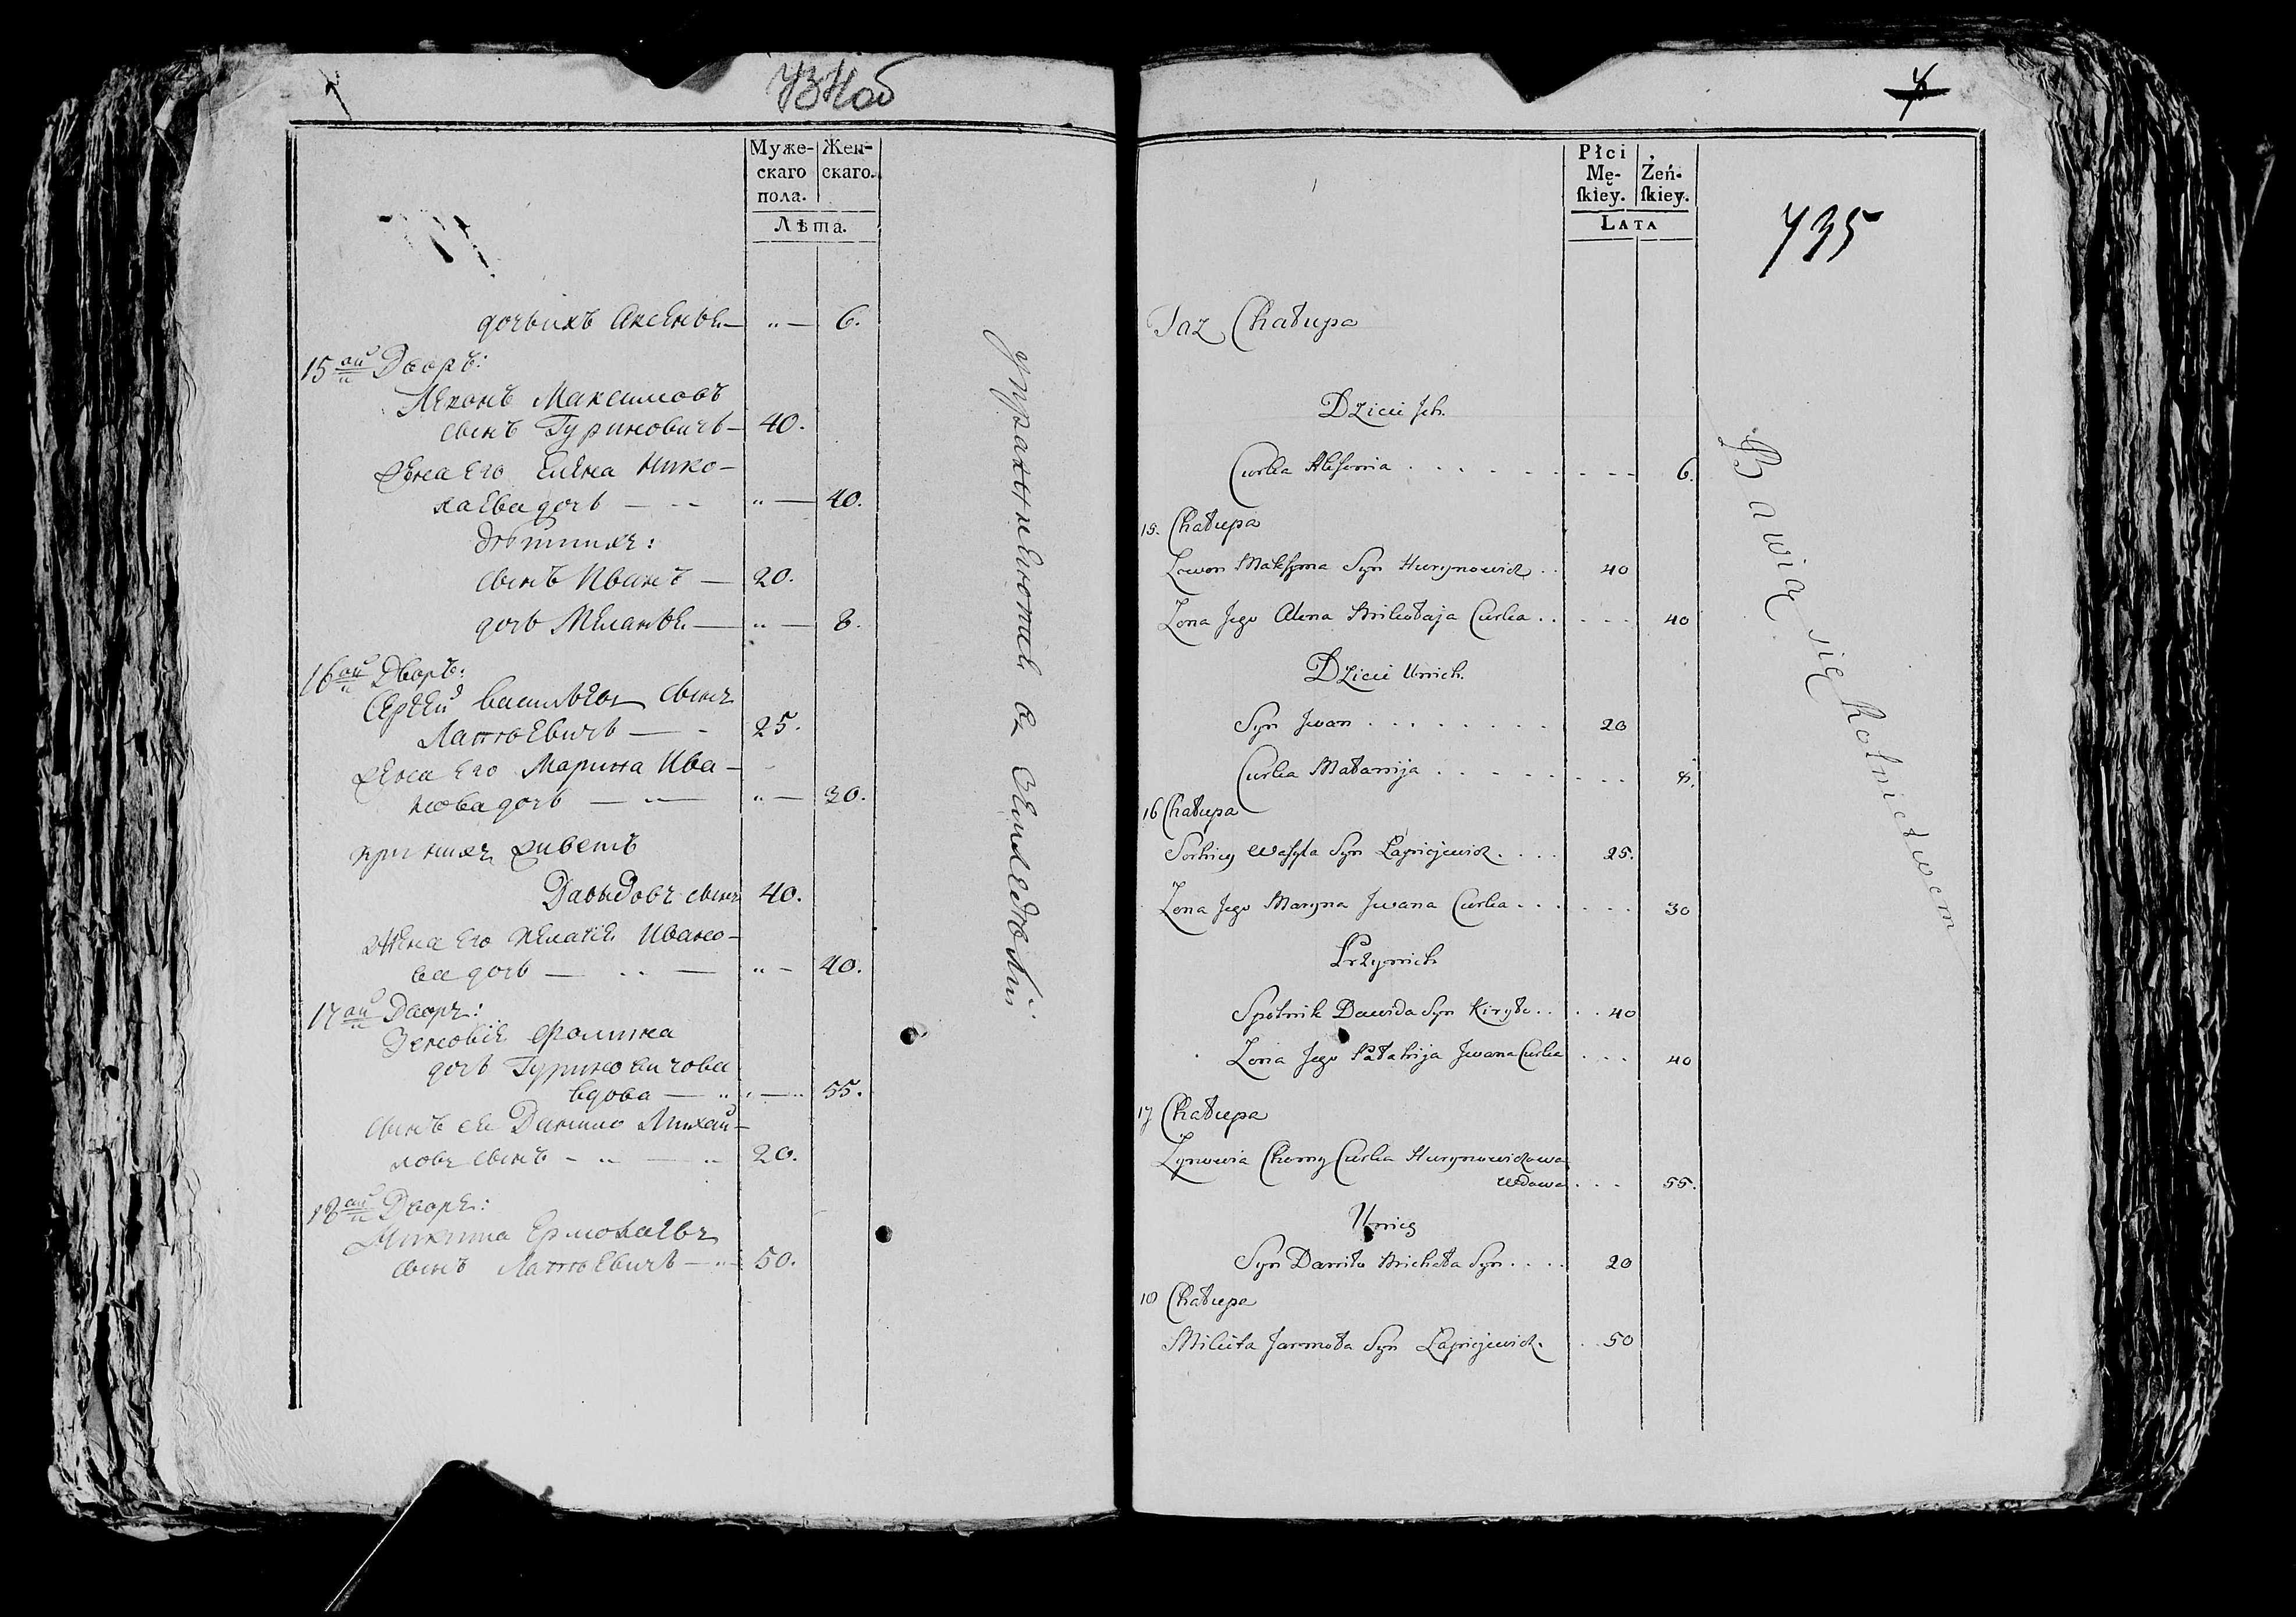 734об
Муже-
скаго
пола.
Жен-
скаго.
Лѣта.
дочь ихъ Аксенья — „ — 6.
15ый Дворъ:
Леконъ Максимовъ
сынъ Гуриновичъ — 40.
жена его Елена Нико-
лаева дочь — „ — 40.
дѣти ихъ:
сынъ Иванъ — 20.
дочь Меланья — „ — 8.
16ый Дворъ:
Сергей Васильевъ сынъ
Лаппѣевичь — 25.
жена его Марина Ива-
нова дочь — „ — „ — 30.
при нихъ живетъ
Давыдовъ сынъ 40.
жена его Пелагея Ивано-
ва дочь — „ — „ — 40.
17ый Дворъ:
Зеновія Фомина
дочь Гуриновичова
вдова — „ — 55.
сынъ ее Данило Михай-
ловъ сынъ — „ — „ 20.
18ый Дворъ:
Микита Ермолаевъ
сынъ Лаппѣевичь — „ — 50.
упражняются въ земледѣліи
7
735
Płci
Mę-
ſkiey.
Żeń-
ſkiey.
LATA
Taż Chałupa
Dzieci Jch.
Curka Aksienia . . . . . 6.
15. Chałupa
Lawon Maksyma Syn Hurynowicz . . 40
Żona Jego Alena Mikołaja Curka . . . . 40
Dzieci Unich.
Syn Jwan . . . . . . . 20
Curka Małanija . . . . . 8.
16 Chałupa
Serhiey Wasyla Syn Łapicjewicz . . . . 25.
Żona Jego Maryna Jwana Curka . . . . 30
Przynich
Społnik Dawida Syn Kiryło . . . . 40
Żona Jego Pałahija Jwana Curka . . . 40
17 Chałupa
Zynowia Chomy Curka Hurynowiczowa
Wdowa . . . 55.
Uniey
Syn Daniło Michała Syn . . . . 20
18 Chałupa
Mikita Jarmoła Syn Łapicjewicz. . . 50
Bawią się Rolnictwem